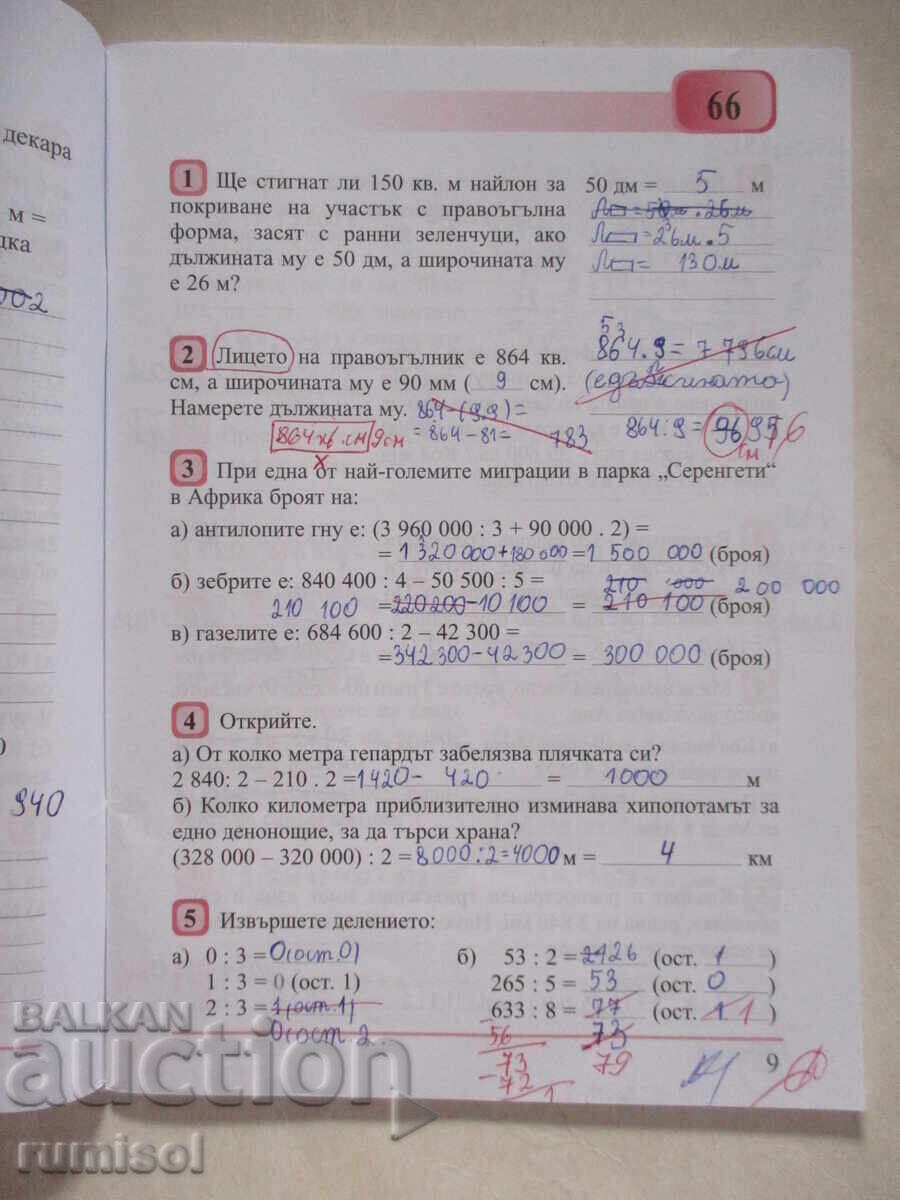 декара
м =
дка
002
940
66
1 Ще стигнат ли 150 кв. м найлон за
покриване на участък с правоъгълна
форма, засят с ранни зеленчуци, ако
дължината му е 50 дм, а широчината му
е 26 м?
50 дм = 5 м
= 50м . 26м
Л▭ = 26м . 5
Л▭ = 130м
2 Лицето на правоъгълник е 864 кв.
см, а широчината му е 90 мм ( 9 см).
Намерете дължината му. 864 - (9.9) =
= 864 - 81 = 783
864 кв. см 9 см
53
864 . 9 = 7 796 см
864 : 9 = 96 95 6
см
3 При една от най-големите миграции в парка „Серенгети“
в Африка броят на:
а) антилопите гну е: (3 960 000 : 3 + 90 000 . 2) =
= 1 320 000 + 180 000 = 1 500 000 (броя)
б) зебрите е: 840 400 : 4 – 50 500 : 5 =
210 000 200 000
210 100 = 220 200 - 10 100 = 210 100 (броя)
в) газелите е: 684 600 : 2 – 42 300 =
= 342 300 - 42 300 = 300 000 (броя)
4 Открийте.
а) От колко метра гепардът забелязва плячката си?
2 840: 2 – 210 . 2 = 1420 - 420 = 1000 м
б) Колко километра приблизително изминава хипопотамът за
едно денонощие, за да търси храна?
(328 000 – 320 000) : 2 = 8000 : 2 = 4000 м = 4 км
5 Извършете делението:
а) 0 : 3 = 0 (ост. 0)
1 : 3 = 0 (ост. 1)
2 : 3 = 1 (ост. 1)
0 (ост. 2
б) 53 : 2 = 26 (ост. 1 )
265 : 5 = 53 (ост. 0 )
633 : 8 = 77 (ост. 1 1 )
56 73
73 79
- 72
1
9
BALKAN
auction
rumisol